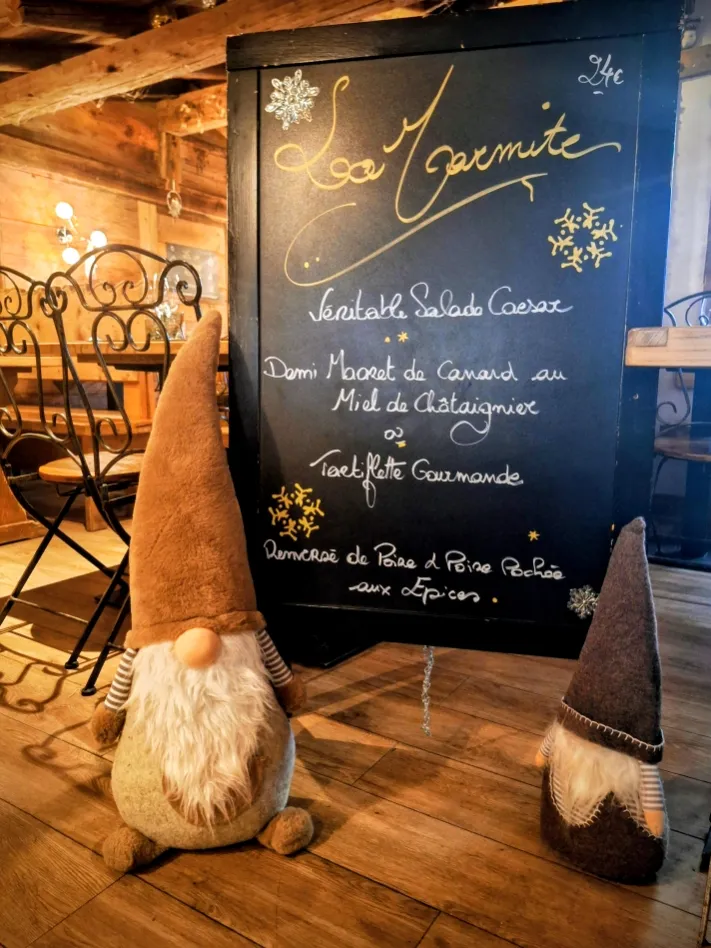 24€
La Marmite
Véritable Salade Caesar
Demi Magret de Canard au
Miel de Châtaignier
ou
Tartiflette Gourmande
Renversé de Poire & Poire Pochée
aux Épices